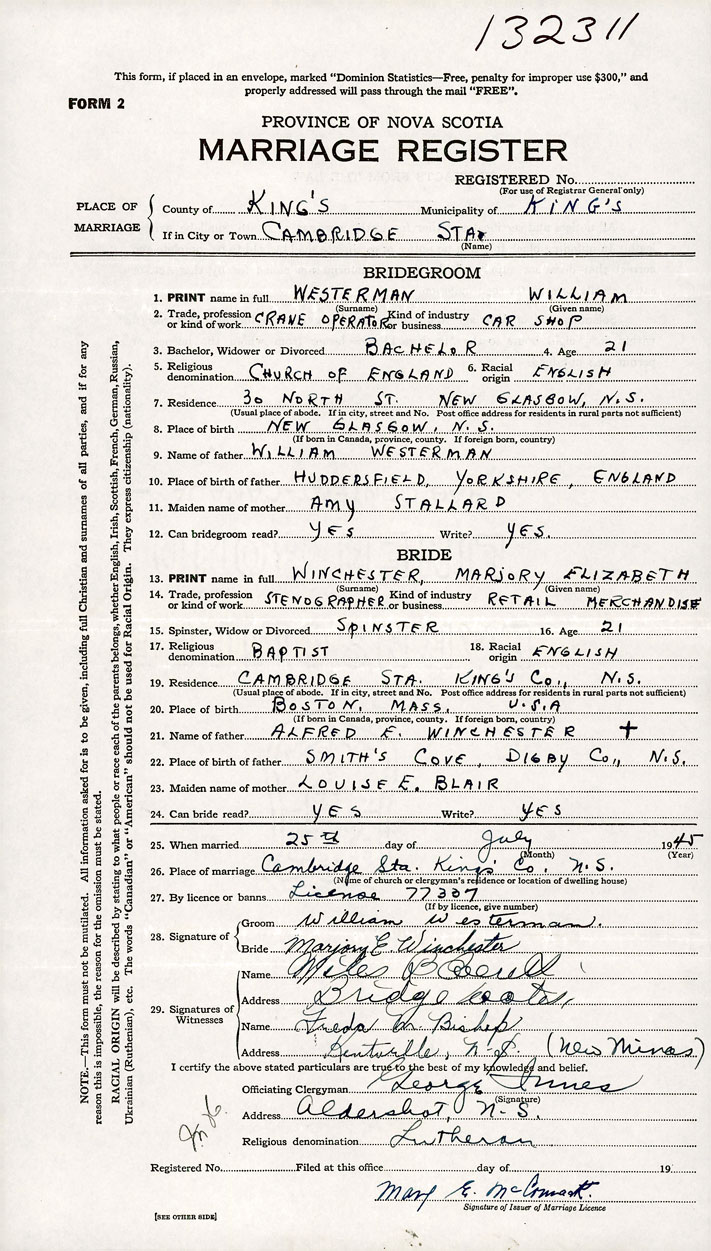 132311
This form, if placed in an envelope, marked "Dominion Statistics—Free, penalty for improper use $300," and
properly addressed will pass through the mail "FREE".
FORM 2
PROVINCE OF NOVA SCOTIA
MARRIAGE REGISTER
REGISTERED No.
(For use of Registrar General only)
PLACE OF MARRIAGE
County of KING'S Municipality of KING'S
If in City or Town CAMBRIDGE STA.
(Name)
BRIDEGROOM
1. PRINT name in full WESTERMAN WILLIAM
(Surname) (Given name)
2. Trade, profession or kind of work CRANE OPERATOR Kind of industry or business CAR SHOP
3. Bachelor, Widower or Divorced BACHELOR 4. Age 21
5. Religious denomination CHURCH OF ENGLAND 6. Racial origin ENGLISH
7. Residence 30 NORTH ST. NEW GLASGOW, N.S.
(Usual place of abode. If in city, street and No. Post office address for residents in rural parts not sufficient)
8. Place of birth NEW GLASGOW, N.S.
(If born in Canada, province, county. If foreign born, country)
9. Name of father WILLIAM WESTERMAN
10. Place of birth of father HUDDERSFIELD, YORKSHIRE, ENGLAND
11. Maiden name of mother AMY STALLARD
12. Can bridegroom read? YES Write? YES.
BRIDE
13. PRINT name in full WINCHESTER, MARJORY ELIZABETH
(Surname) (Given name)
14. Trade, profession or kind of work STENOGRAPHER Kind of industry or business RETAIL MERCHANDISE
15. Spinster, Widow or Divorced SPINSTER 16. Age 21
17. Religious denomination BAPTIST 18. Racial origin ENGLISH
19. Residence CAMBRIDGE STA. KING'S Co., N.S.
(Usual place of abode. If in city, street and No. Post office address for residents in rural parts not sufficient)
20. Place of birth BOSTON, MASS. U.S.A
(If born in Canada, province, county. If foreign born, country)
21. Name of father ALFRED E. WINCHESTER +
22. Place of birth of father SMITH'S COVE, DIGBY Co., N.S.
23. Maiden name of mother LOUISE E. BLAIR
24. Can bride read? YES Write? YES
25. When married 25th day of July 1945
(Month) (Year)
26. Place of marriage Cambridge Sta. Kings' Co. N.S.
(Name of church or clergyman's residence or location of dwelling house)
27. By licence or banns License 77337
(If by licence, give number)
28. Signature of
Groom William Westerman.
Bride Marjory E Winchester
29. Signatures of Witnesses
Name
Address Bridgewater,
Name Freda M. Bishop
Address Kentville, N.S (New Minas)
I certify the above stated particulars are true to the best of my knowledge and belief.
Officiating Clergyman George Innes
(Signature)
Address Aldershot, N.S.
Religious denomination Lutheran
Registered No. Filed at this office day of 19
Mary E. McCormack.
Signature of Issuer of Marriage Licence
[SEE OTHER SIDE]
NOTE.—This form must not be mutilated. All information asked for is to be given, including full Christian and surnames of all parties, and if for any
reason this is impossible, the reason for the omission must be stated.
RACIAL ORIGIN will be described by stating to what people or race each of the parents belongs, whether English, Irish, Scottish, French, German, Russian,
Ukrainian (Ruthenian), etc. The words "Canadian" or "American" should not be used for Racial Origin. They express citizenship (nationality).